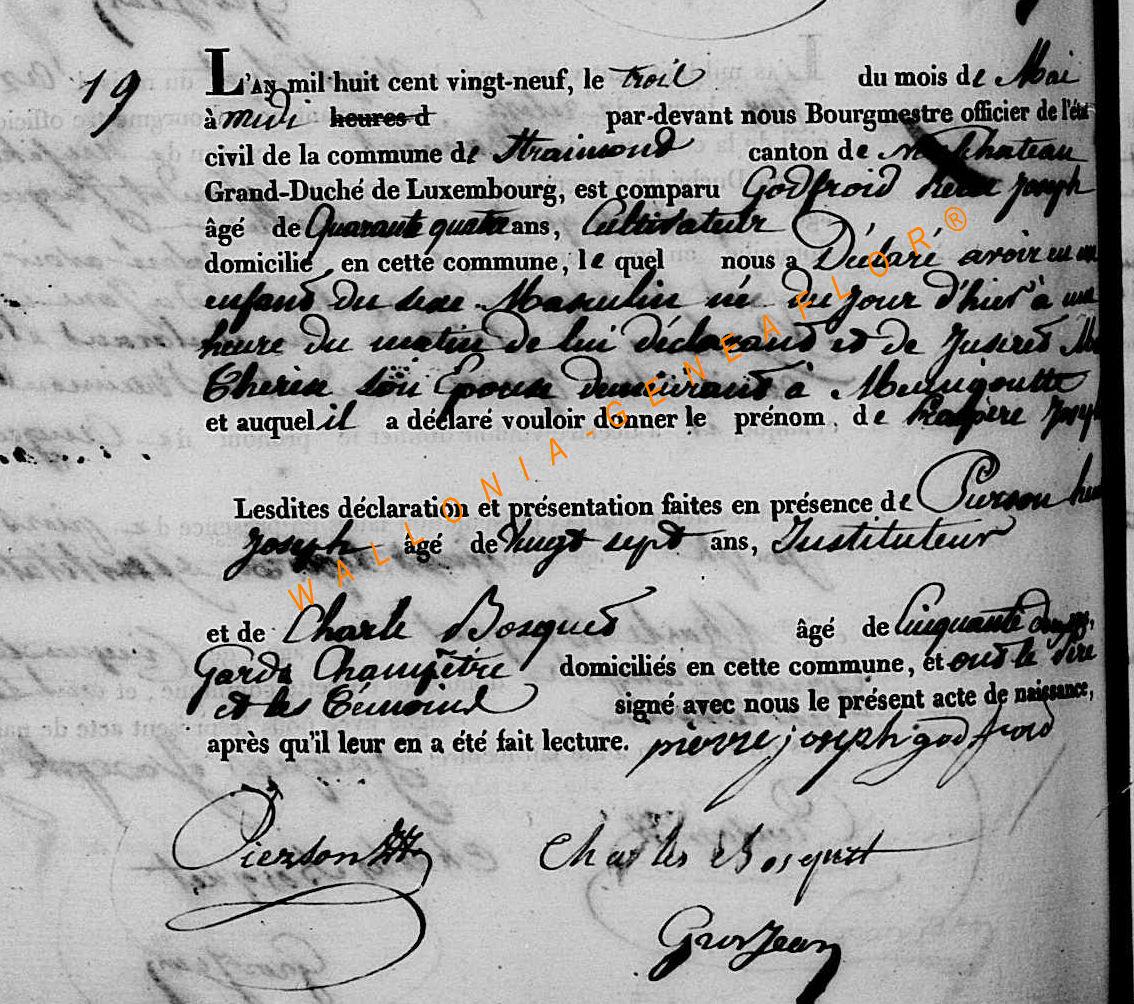 19
L'AN mil huit cent vingt-neuf, le trois du mois de Mai
à midi heures d par-devant nous Bourgmestre officier de l'état
civil de la commune de Straimont canton de neufchateau
Grand-Duché de Luxembourg, est comparu Godfroid Joseph
âgé de Quarante quatre ans, Cultivateur
domicilié en cette commune, le quel nous a Déclaré avoir eu un
enfant du sexe Masculin né du jour d'hier à une
heure du matin de lui déclarant et de
Therese son Epouse demeurant à Menugoutte
et auquel il a déclaré vouloir donner le prénom de Joseph
Lesdites déclaration et présentation faites en présence de Pierson
Joseph âgé de vingt sept ans, Instituteur
et de Charle Bosquet âgé de Cinquante
Garde Champêtre domiciliés en cette commune, et ont le Père
et les témoins signé avec nous le présent acte de naissance,
après qu'il leur en a été fait lecture. pierre joseph godfroid
Pierson
Charles Bosquet
GrosJean
WALLONIA-GENEAFLOR®